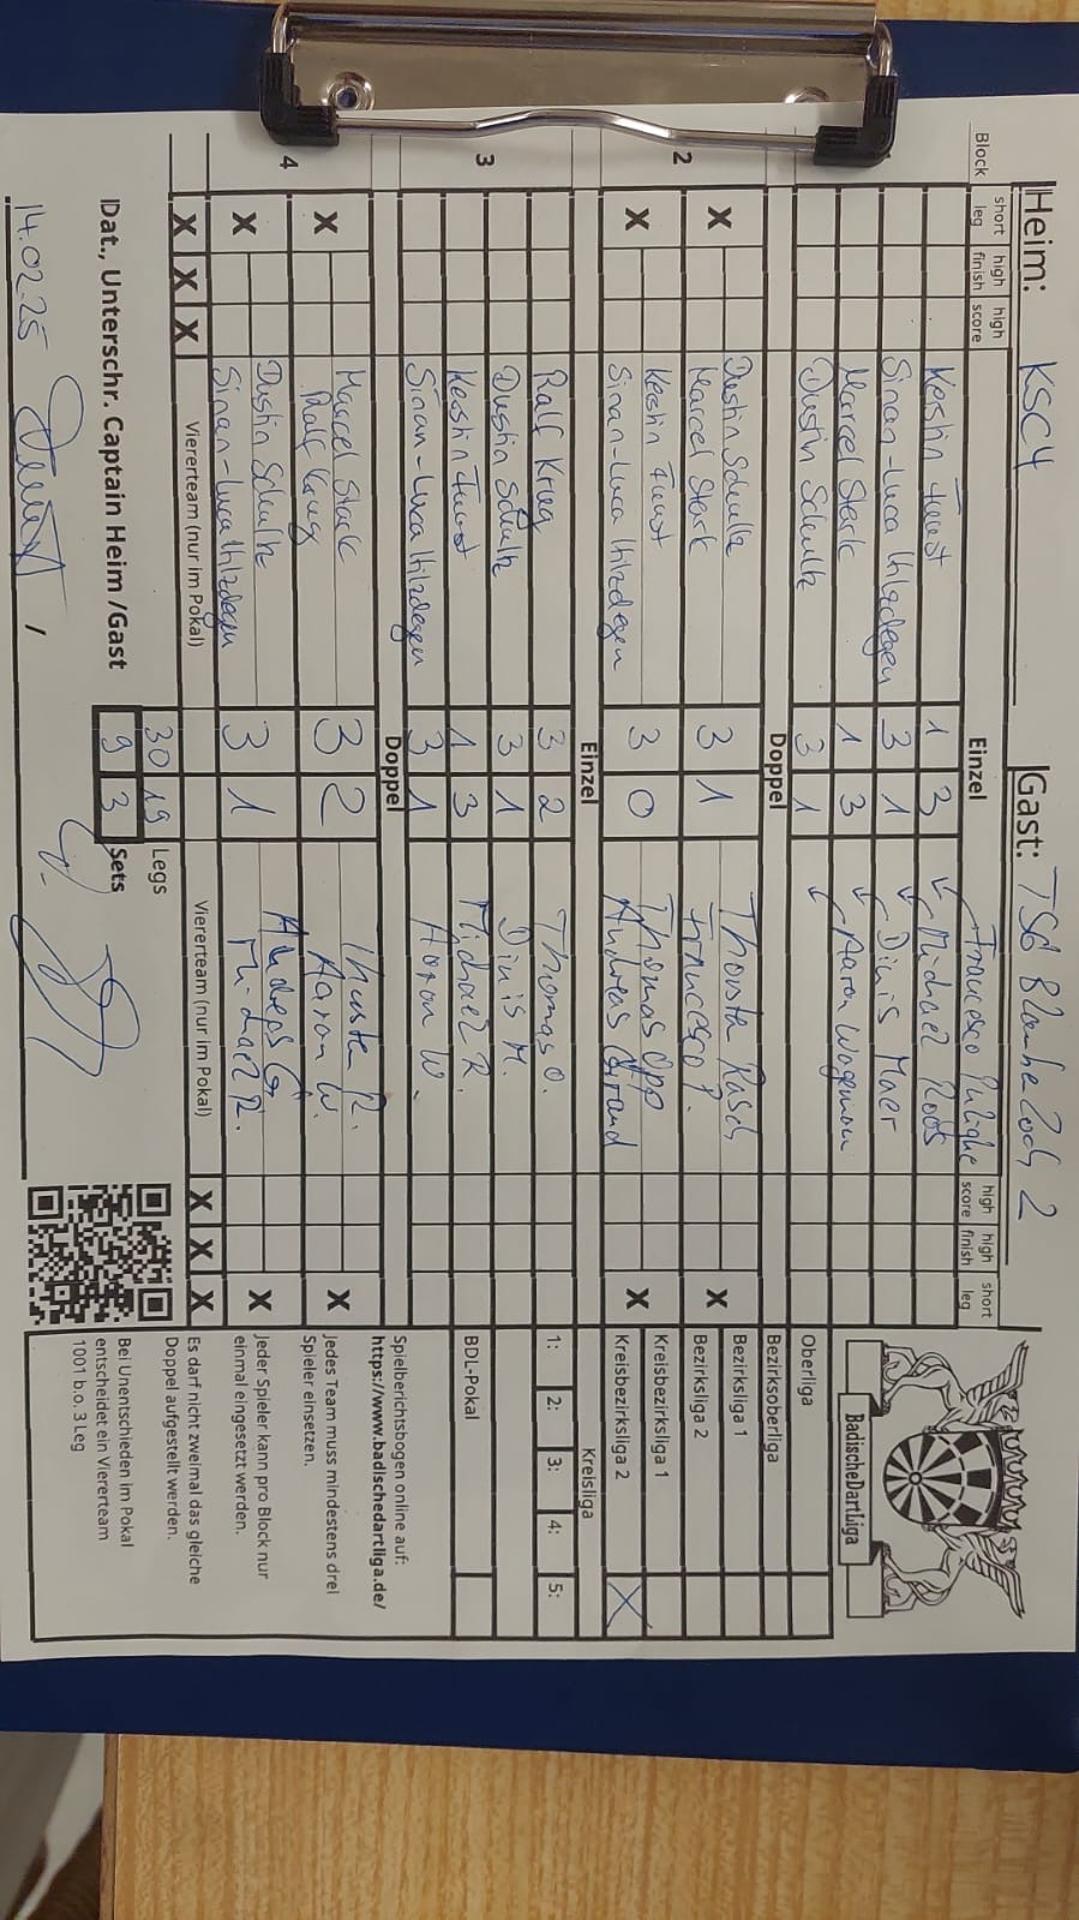 Heim: KSC4 Gast: TSG Blankenloch 2
Block short leg high finish high score Einzel high score high finish short leg
Francesco
Kerstin Faust 1 3 Michael Roos
Sinan-Luca 3 1 Dinis Maier
Marcel Stark 1 3 Aaron Wagemann
Dustin Schulk 3 1
Doppel
2
X Dustin Schulk 3 1 Thorsten Rasch X
Marcel Stark Francesco P.
X Kerstin Faust 3 0 Thomas Opp X
Sinan-Luca Andreas
Einzel
3
Ralf Krieg 3 2 Thomas O.
Dustin Schulk 3 1 Dinis M.
Kerstin Faust 1 3 Michael R.
Sinan-Luca 3 1 Aaron W.
Doppel
4
X Marcel Stark 3 2 Thorsten R. X
Ralf Krieg Aaron W.
X Dustin Schulk 3 1 Andreas G. X
Sinan-Luca Michael R.
X X X Viererteam (nur im Pokal) Viererteam (nur im Pokal) X X X
30 19 Legs
Dat., Unterschr. Captain Heim /Gast 9 3 Sets
14.02.25 /
BadischeDartLiga
Oberliga
Bezirksoberliga
Bezirksliga 1
Bezirksliga 2
Kreisbezirksliga 1
Kreisbezirksliga 2 X
Kreisliga
1: 2: 3: 4: 5:
BDL-Pokal
Spielberichtsbogen online auf:
https://www.badischedartliga.de/
Jedes Team muss mindestens drei
Spieler einsetzen.
Jeder Spieler kann pro Block nur
einmal eingesetzt werden.
Es darf nicht zweimal das gleiche
Doppel aufgestellt werden.
Bei Unentschieden im Pokal
entscheidet ein Viererteam
1001 b.o. 3 Leg